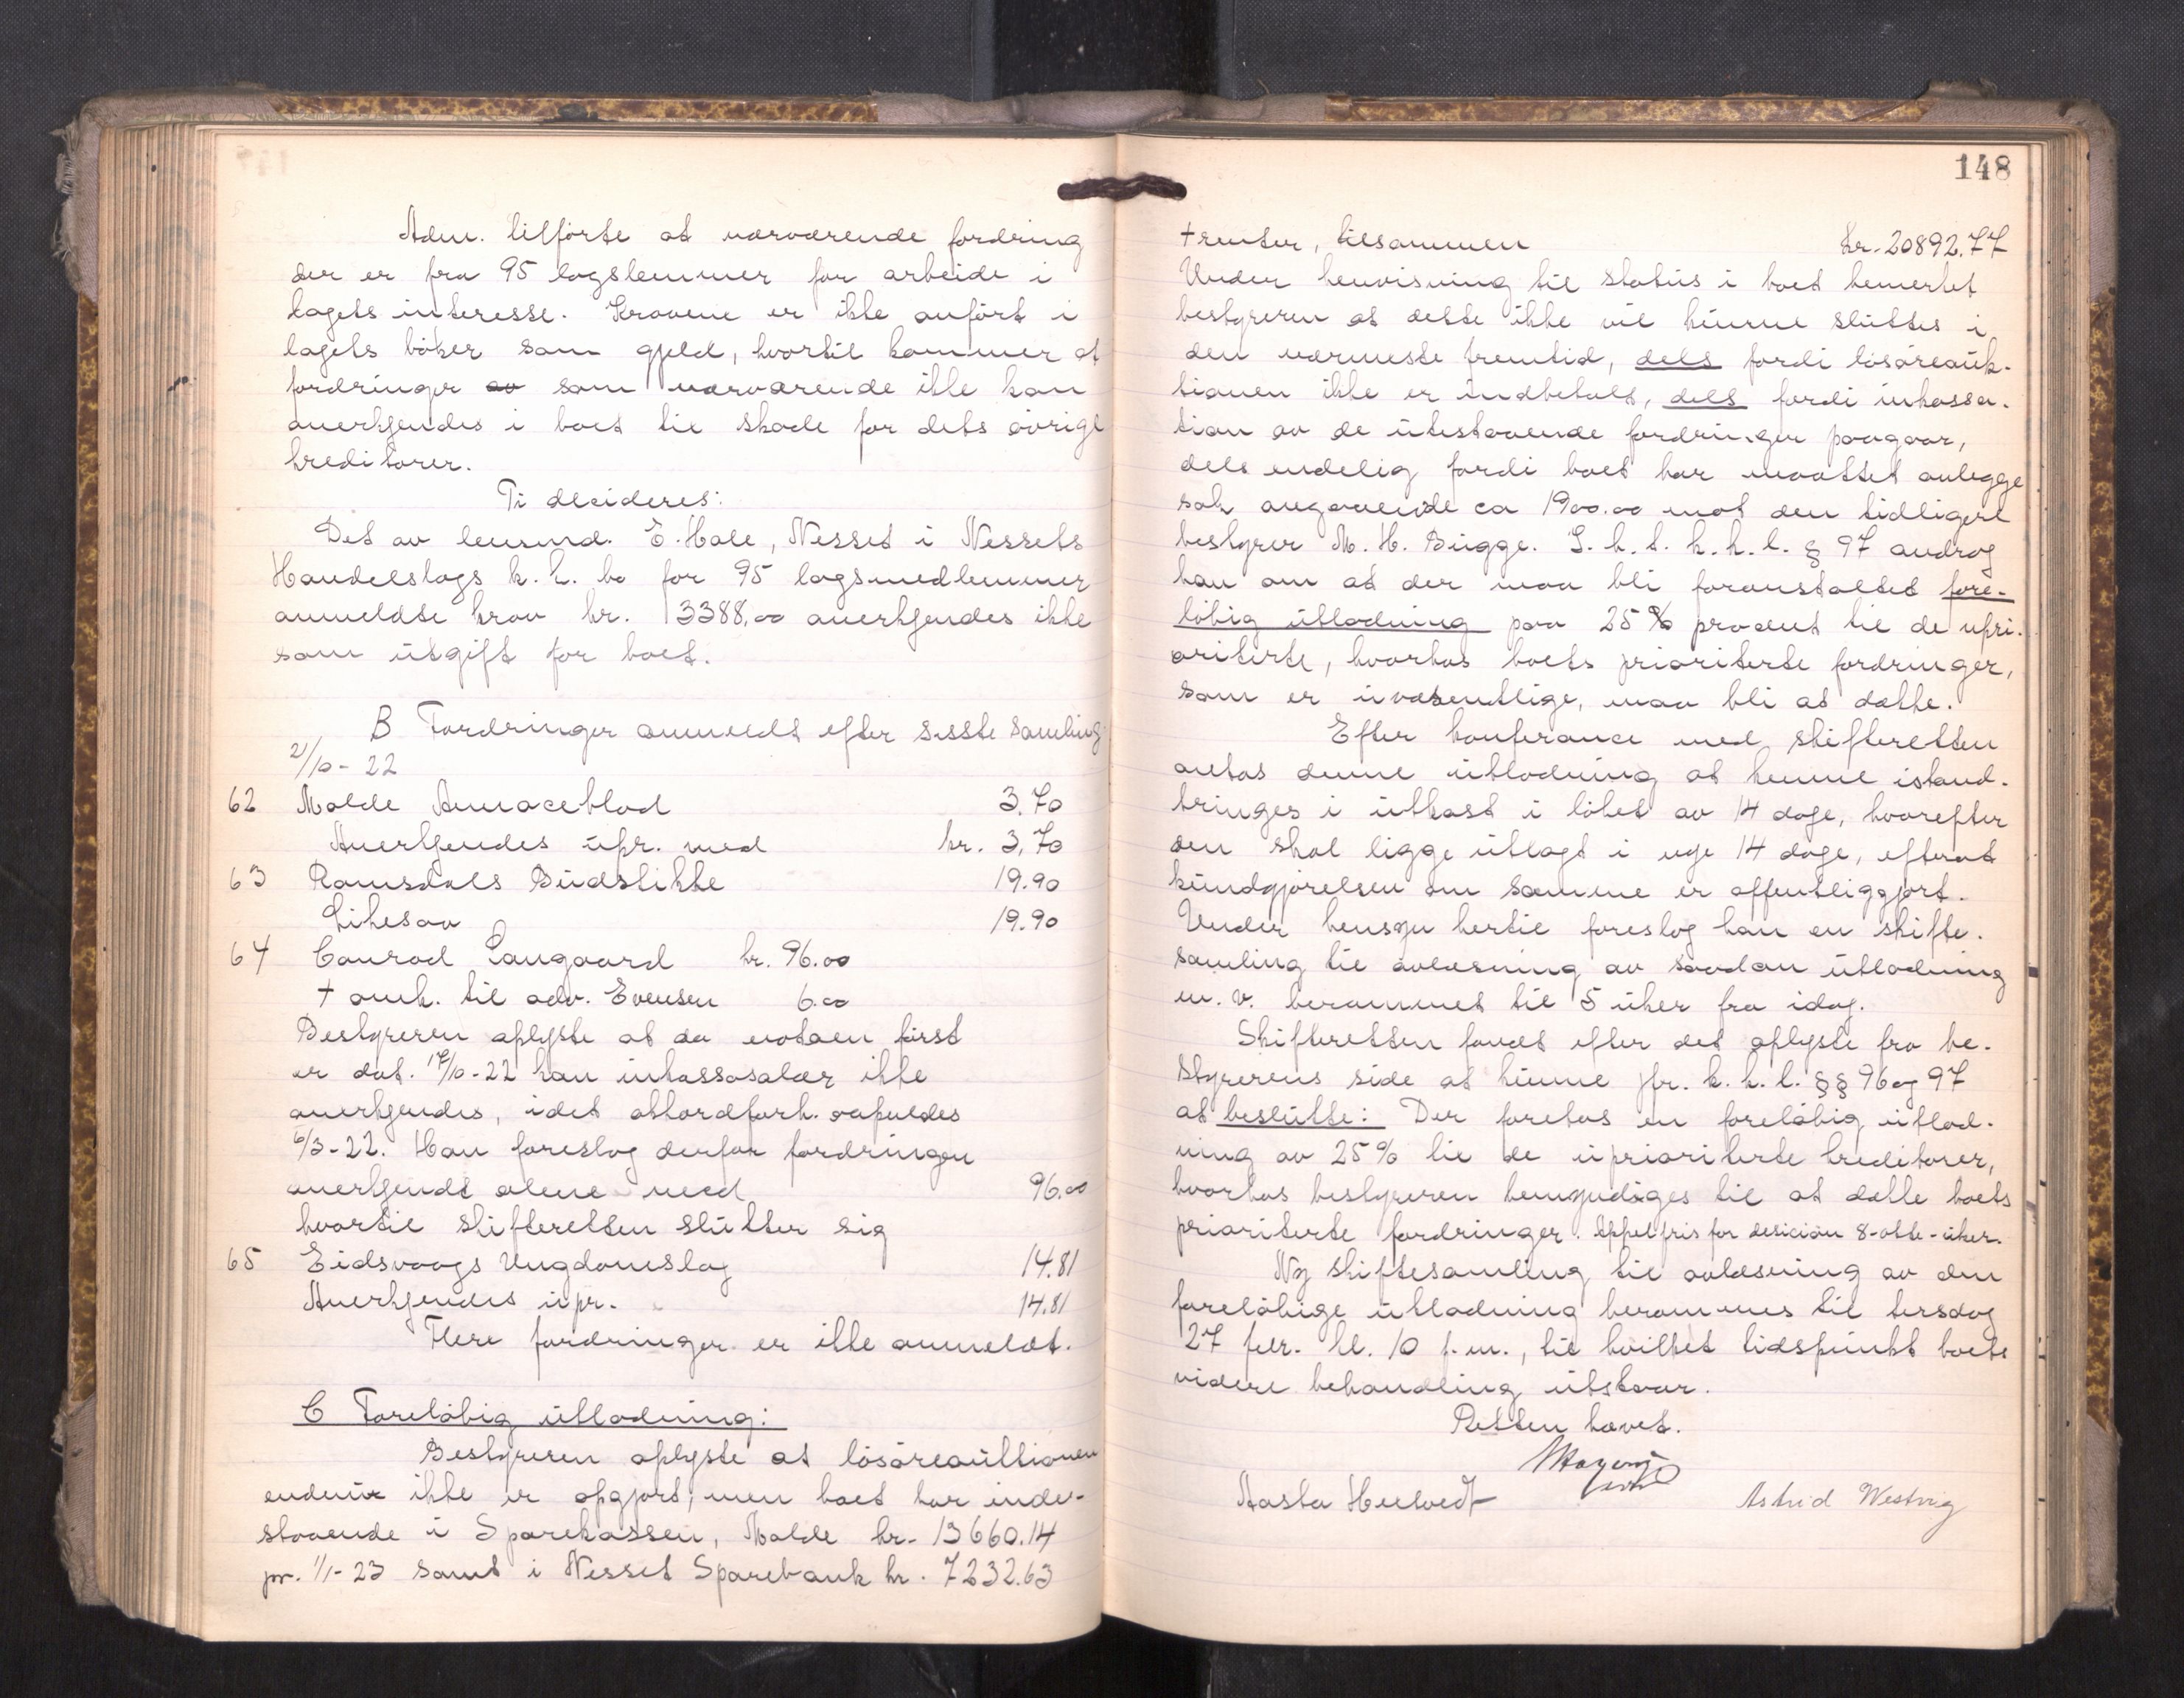 Adm. tilførte at nærværende fordring
der er fra 95 lagslemmer for arbeide i
lagets interesse. Kravene er ikke anført i
lagets bøker som gjeld, hvortil kommer at
fordringer av som nærværende ikke kan
anerkjendes i boet til skade for dets øvrige
kreditorer.
Ti decideres:
Det av lensmd. E. Hole, Nesset i Nessets
Handelslags k.k. bo for 95 lagsmedlemmer
anmeldte krav kr. 3388,00 anerkjendes ikke
som utgift for boet.
B Fordringer anmeldt efter sisste samling
2/10-22
62 Molde Annonceblad 3.70
Anerkjendes upr. med kr. 3,70
63 Romsdals Budstikke 19.90
Likesaa 19.90
64 Conrad Langaard kr. 96.00
+ omk. til adv. Evensen 6.00
Bestyreren oplyste at da notaen først
er dat. 17/10-22 kan inkassosalær ikke
anerkjendes, idet akkordforh. aapnedes
6/3-22. Han foreslog derfor fordringen
anerkjendt alene med 96.00
hvortil skifteretten slutter sig
65 Eidsvaags Ungdomslag 14.81
Anerkjendes upr. 14.81
Flere fordringer er ikke anmeldt.
C Foreløbig utlodning:
Bestyreren oplyste at løsøreauktionen
endnu ikke er opgjort, men boet har inde-
staaende i Sparekassen, Molde kr. 13660.14
pr. 1/1-23 samt i Nesset Sparebank kr. 7232.63
148
+ renter, tilsammen kr. 20892.77
Under henvisning til status i boet bemerket
bestyreren at dette ikke vil kunne sluttes i
den nærmeste fremtid, dels fordi løsøreauk-
tionen ikke er indbetalt, dels fordi inkassa-
tion av de utestaaende fordringer paagaar,
dels endelig fordi boet har maattet anlegge
sak angaaende ca 1900.00 mot den tidligere
bestyrer M. H. Bugge. I h. t. k.k.l. § 97 androg
han om at der maa bli foranstaltet fore-
løbig utlodning paa 25 % procent til de upri-
oriterte, hvorhos boets prioriterte fordringer,
som er uvæsentlige, maa bli at dække.
Efter konferance med skifteretten
antas denne utlodning at kunne istand-
bringes i utkast i løpet av 14 dage, hvorefter
den skal ligge utlagt i nye 14 dage, efterat
kundgjørelsen om samme er offentliggjort.
Under hensyn hertil foreslog han en skifte-
samling til avlæsning av saadan utlodning
m.v. berammet til 5 uker fra idag.
Skifteretten fandt efter det oplyste fra be-
styrerens side at kunne jfr. k.k.l. §§ 96 og 97
at beslutte: Der foretas en foreløbig utlod-
ning av 25% til de uprioriterte kreditorer,
hvorhos bestyreren bemyndiges til at dække boets
prioriterte fordringer. Appelfris for desicion 8-otte-uker.
Ny skiftesamling til avlæsning av den
foreløbige utlodning berammes til tirsdag
27 febr. kl. 10 f.m., til hvilket tidspunkt boets
videre behandling utstaar.
Retten hævet.
Aasta
Astrid Westvig